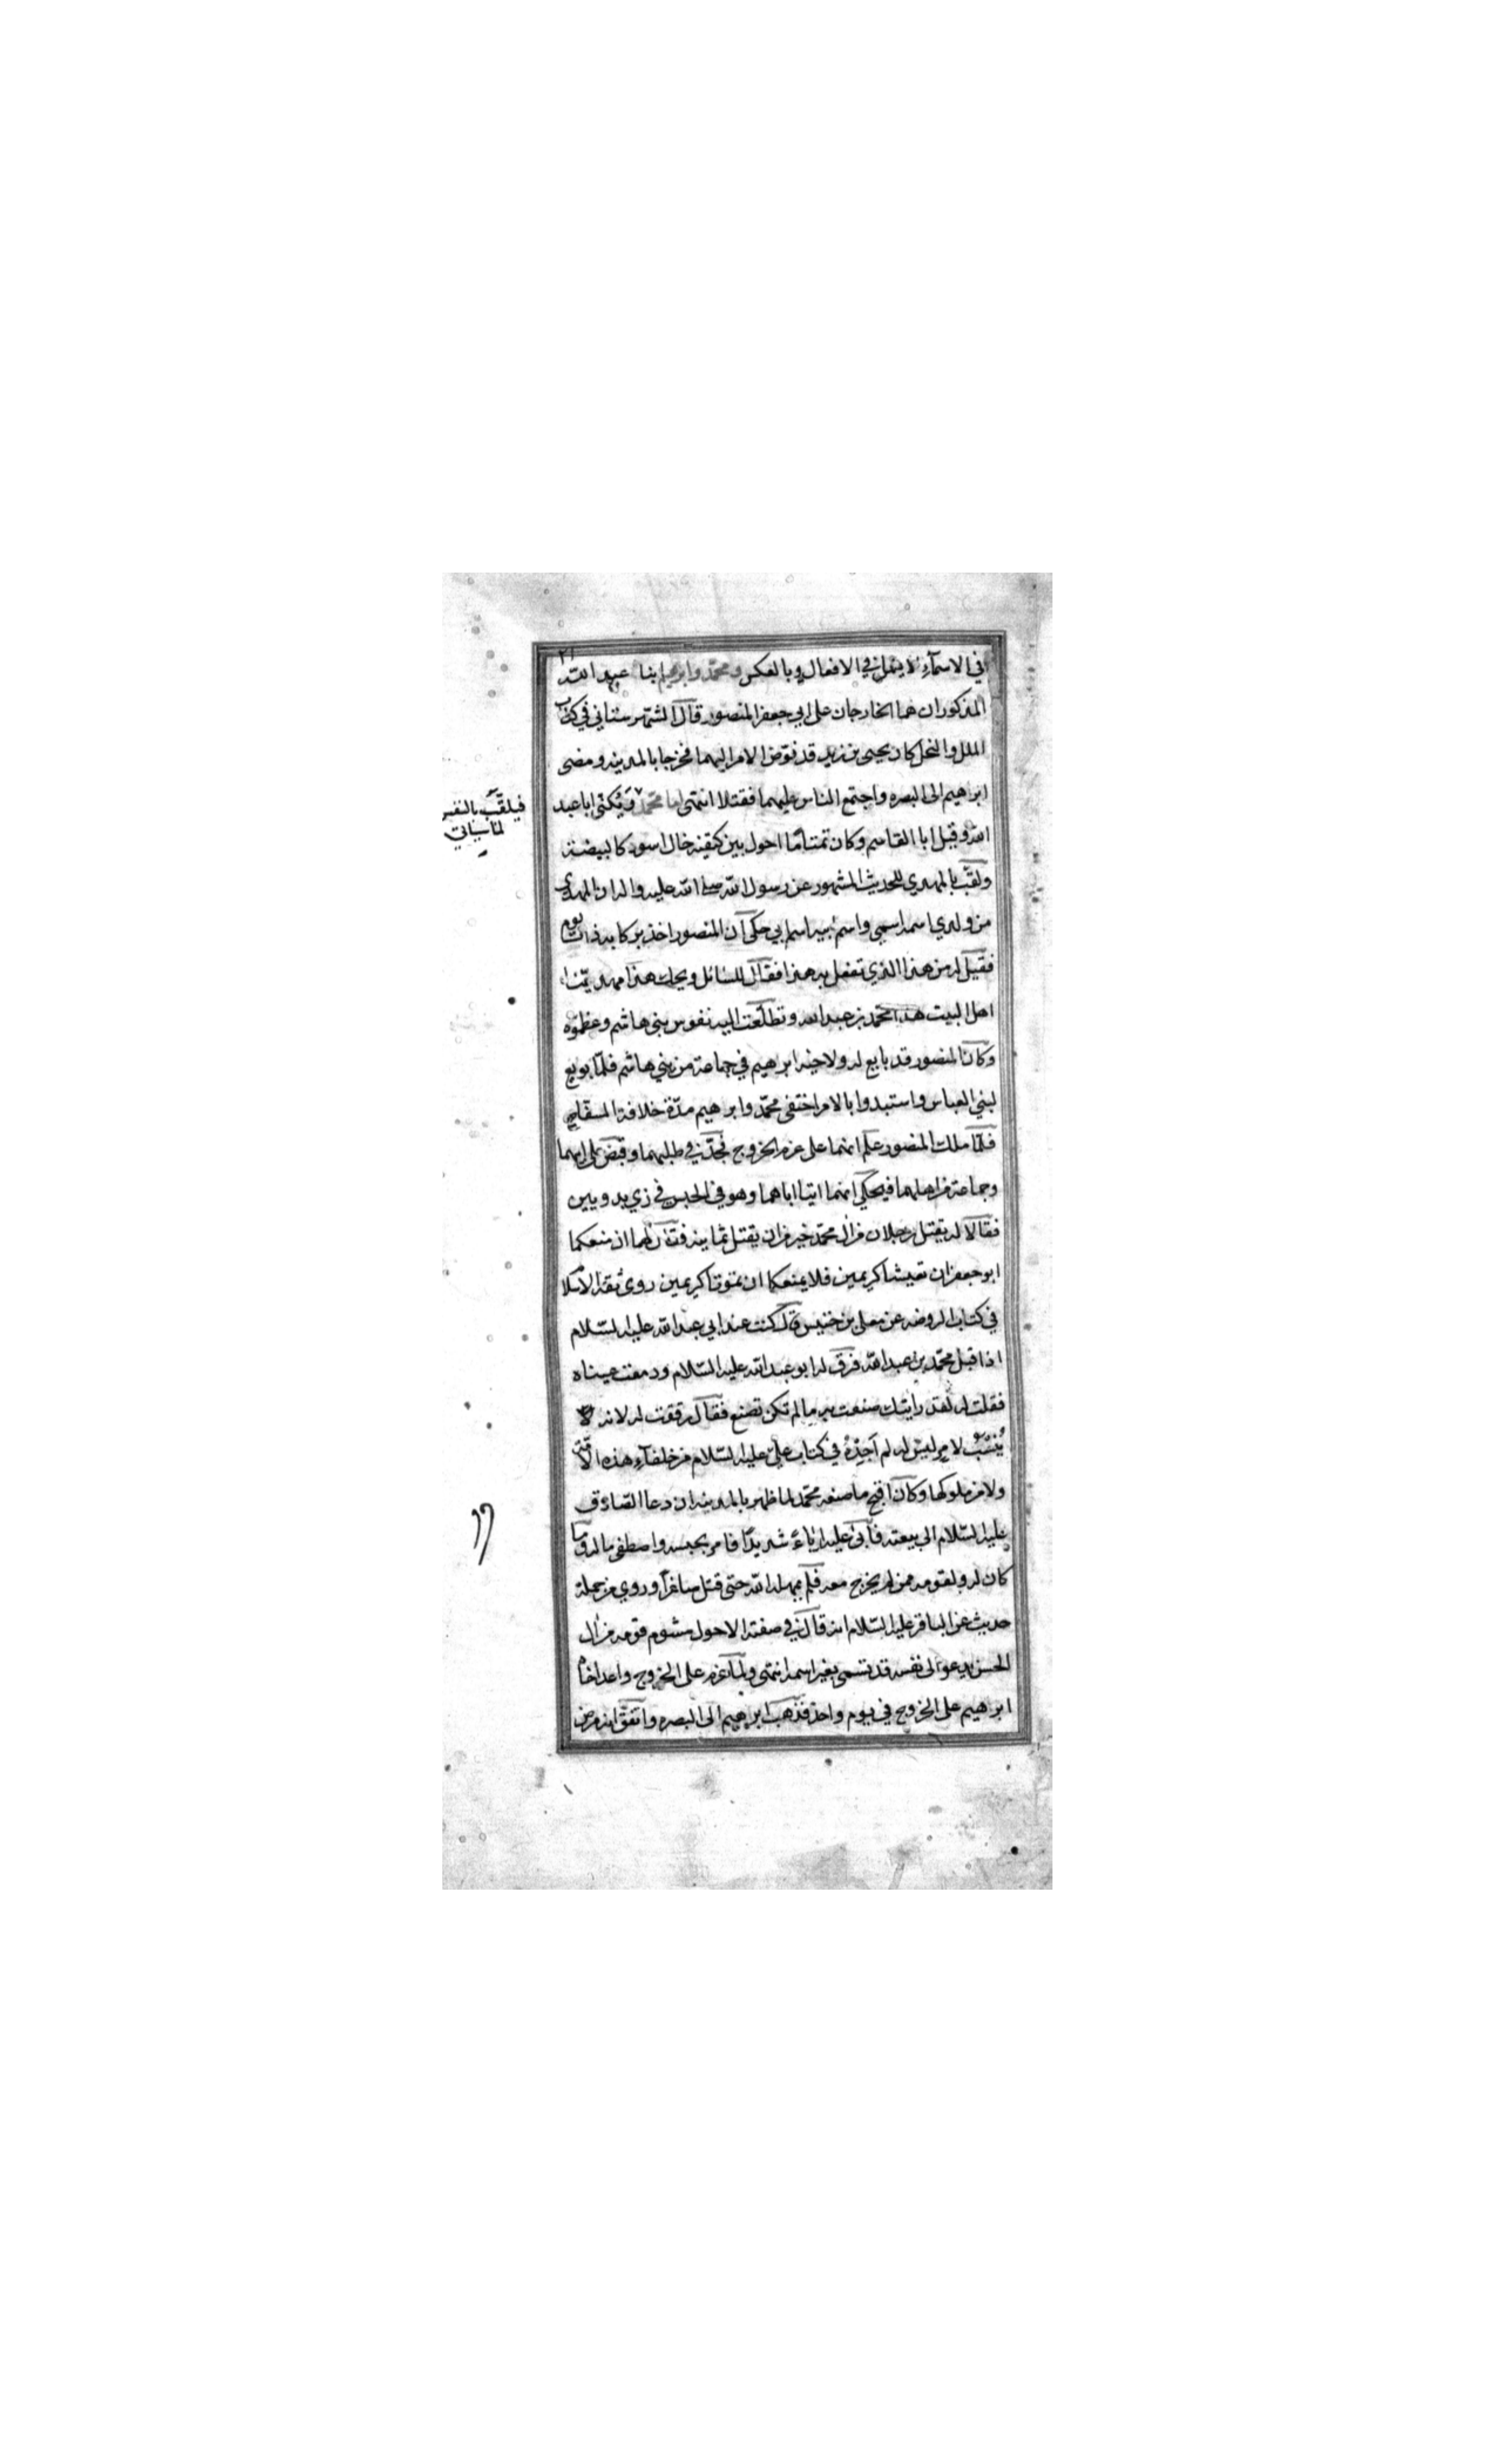 ٢١
في الاسمآء لا يتمل في الافعال وبالعكس ومحمّد وابرهيم ابنا عبد الله
المذكوران هما الخارجان على ابي جعفر المنصور قال الشهرستاني في كتاب
الملل والنحل كان يحيى بن زيد قد فوّض الامر اليهما فخرجا بالمدينه ومضى
ابرهيم الى البصره واجتمع الناس عليهما فقتلا انتهى اما محمّد ويُكنّى ابا عبد
الله وقيل ابا القاسم وكان تمتامًا احول بين كتفيه خال اسود كالبيضة
ولقّب بالمهدي للحديث المشهور عن رسول الله صلى الله عليه واله ان المهدي
من ولدي اسمه اسمي واسم ابيه اسم ابي حكى ان المنصور اخذ بركابه ذات يوم
فقيل له من هذا الذي تفعل به هذا فقال للسائل ويحك هذا مهديّنا
اهل البيت هذا محمد بن عبد الله وتطلّعت اليه نفوس بني هاشم وعظموه
وكان المنصور قد بايع له ولاخيه ابرهيم في جماعة من بني هاشم فلمّا بويع
لبني العباس واستبدوا بالامر اختفى محمّد وابرهيم مدّة خلافة السفّاح
فلمّا ملك المنصور علم انهما على عزم الخروج فجدّ في طلبهما وقبض على ابيهما
وجماعة من اهلهما فيحكى انهما اتيا اباهما وهو في الحبس في زي بدويين
فقالا له يقتل رجلان من ال محمّد خير من ان يقتل ثمانيه فقال لهما ان منعكما
ابو جعفر ان تعيشا كريمين فلا يمنعكما ان تموتا كريمين روى ثقة الاسلام
في كتاب الروضه عن معلى بن خنيس قال كنت عند ابي عبد الله عليه السّلام
اذ اقبل محمّد بن عبد الله فرقّ له ابو عبد الله عليه السّلام ودمعت عيناه
فقلت له لقد رايتك صنعت به ما لم تكن تصنع فقال رققت له لانه
يُنسَب لامر ليس له لم اَجِدْهُ في كتاب عليّ عليه السّلام من خلفآء هذه الامّة
ولا من ملوكها وكان اقبح ما صنعه محمّد لما ظهر بالمدينه ان دعا الصّادق
عليه السّلام الى بيعته فأبى عليه اباءً شديدًا فامر بحبسه واصطفى ماله وما
كان له ولقومه ممن لم يخرج معه فلم يمهله الله حتى قتل صاغرًا وروي من جملة
حديث عن الباقر عليه السّلام انه قال في صفته الاحول مشوم قومه من ال
الحسن يدعو الى نفسه قد تسمى بغير اسمه انتهى ولمّا عزم على الخروج واعد اخاه
ابرهيم على الخروج في يوم واحد فذهب ابرهيم الى البصره واتفق انه مرض
فيلقّب بالنفس
لما سياتي